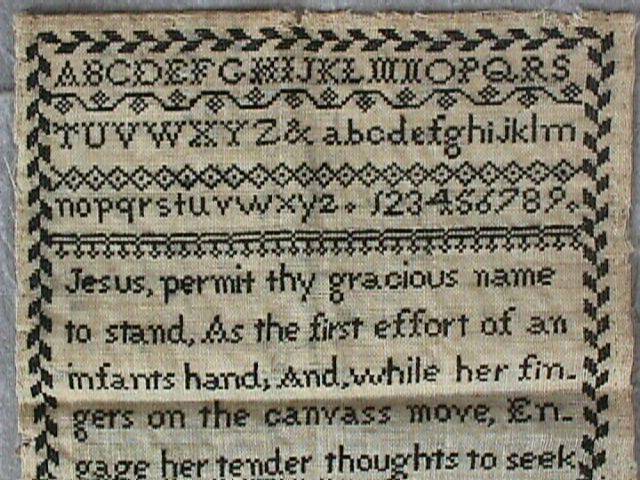 ABCDEFGHIJKLMNOPQRS
TUVWXYZ& abcdefghijklm
nopqrstuvwxyz. 123456789.
Jesus, permit thy gracious name
to stand, As the first effort of an
infants hand; And, while her fin-
gers on the canvass move, En-
gage her tender thoughts to seek